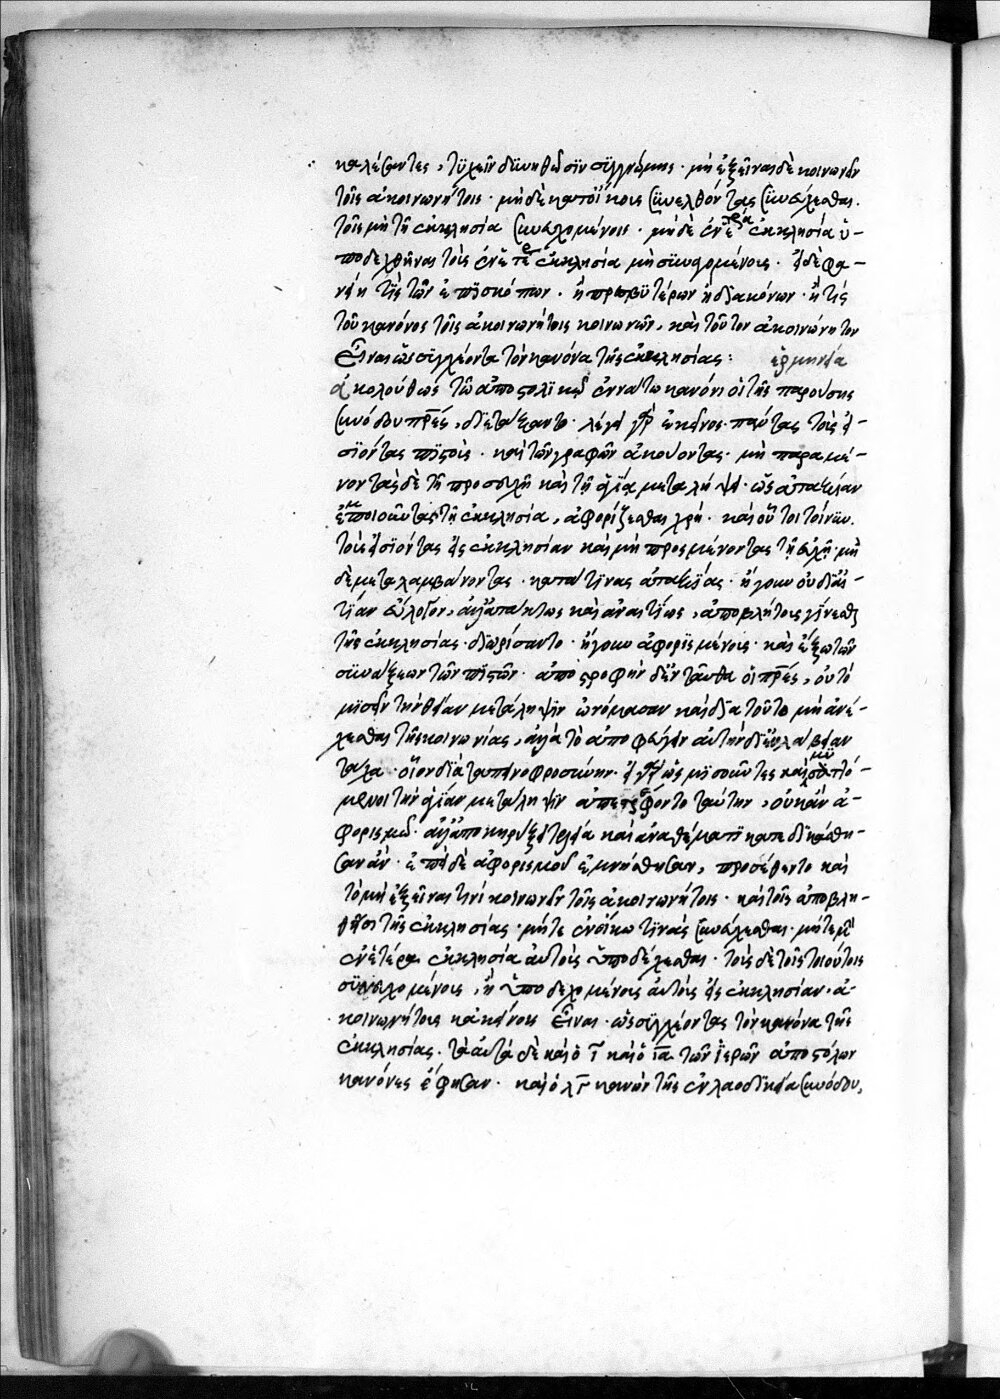 καλέσαντες, τυχεῖν δυνηθῶσιν συγγνώμης· μὴ ἐξεῖναι δὲ κοινωνεῖν
τοῖς ἀκοινωνήτοις· μὴ δὲ κατοίκοις συνελθόντας συνεύχεσθαι
τοῖς μὴ τῇ ἐκκλησία συνευχομένοις· μὴ δὲ ἐν ἑτέρα ἐκκλησία ὑ-
ποδεχθῆναι τοῖς ἐν ἑτέρα ἐκκλησία μὴ συναγομένοις· εἰ δὲ φα-
νείη τὶς τῶν ἐπισκόπων· ἢ πρεσβυτέρων ἢ διακόνων· ἤ τις
τοῦ κανόνος τοῖς ἀκοινωνήτοις κοινωνῶν, καὶ τοῦτον ἀκοινώνητον
εἶναι ὡς συγχέοντα τὸν κανόνα τῆς ἐκκλησίας: ἑρμηνεία
ἀκολούθως τῶ ἀποστολικῶ ἐννάτω κανόνι οἱ τῆς παρούσης
συνόδου πρες, διετάξαντο· λέγει γὰρ ἐκεῖνος· πάντας τοὺς εἰ-
σιόντας πιστοὺς· καὶ τῶν γραφῶν ἀκούοντας· μὴ παραμέ-
νοντας δὲ τῆ προσευχῆ καὶ τῆ ἁγία μεταλήψει· ὡς ἀταξίαν
ἐμποιοῦντας τῆ ἐκκλησία, ἀφορίζεσθαι χρή· καὶ οὗτοι τοίνυν
τοὺς εἰσιόντας εἰς ἐκκλησίαν καὶ μὴ προσμένοντας τῆ εὐχῆ· μὴ
δὲ μεταλαμβάνοντας· κατά τινας ἀταξίας· ἤγουν οὐ δι' αἰ-
τίαν εὔλογον, ἀλλ' ἀτάκτως καὶ ἀναιτίως, ἀποβλήτους γίνεσθαι
τῆς ἐκκλησίας διωρίσαντο· ἤγουν ἀφορισμένους· καὶ ἔξω τῶν
συνάξεων τῶν πιστῶν· ἀποστροφὴν δ' ἐνταῦθα οἱ πρες, οὐ τὸ
μισεῖν τὴν θείαν μετάληψιν ὠνόμασαν καὶ διὰ τοῦτο μὴ ἀνέ-
χεσθαι τῆς κοινωνίας, ἀλλὰ τὸ ἀποφεύγειν αὐτὴν δι' εὐλάβειαν
τάχα· οἷον διὰ ταπεινοφροσύνην· εἰ γὰρ ὡς μισοῦντες καὶ μυσαττό-
μενοι τὴν ἁγίαν μετάληψιν ἀπετρέφοντο ταύτην, οὐκ ἂν ἀ-
φορισμῶ· ἀλλ' ἀποκηρύξει τελεία καὶ ἀναθέματι κατεδικάσθη-
σαν ἄν· ἐπεὶ δὲ ἀφορισμοῦ ἐμνήσθησαν, προσέθεντο καὶ
τὸ μὴ ἐξεῖναι τινὶ κοινωνεῖν τοῖς ἀκοινωνήτοις· καὶ τοῖς ἀποβλή-
τοις τῆς ἐκκλησίας· μήτε ἐν οἴκω τινὰς συνεύχεσθαι· μήτε μὴν
ἐν ἑτέρα ἐκκλησία αὐτοὺς ὑποδέχεσθαι· τοὺς δὲ τοῖς τοιούτοις
συνευχομένους, ἢ ὑποδεχομένους αὐτοὺς εἰς ἐκκλησίαν, ἀ-
κοινωνήτους κἀκείνους εἶναι· ὡς συγχέοντας τὸν κανόνα τῆς
ἐκκλησίας. τὰ αὐτὰ δὲ καὶ ὁ ι καὶ ὁ ια τῶν ἱερῶν ἀποστόλων
κανόνες ἔφησαν· καὶ ὁ λγ κανὼν τῆς ἐν λαοδικεία συνόδου,